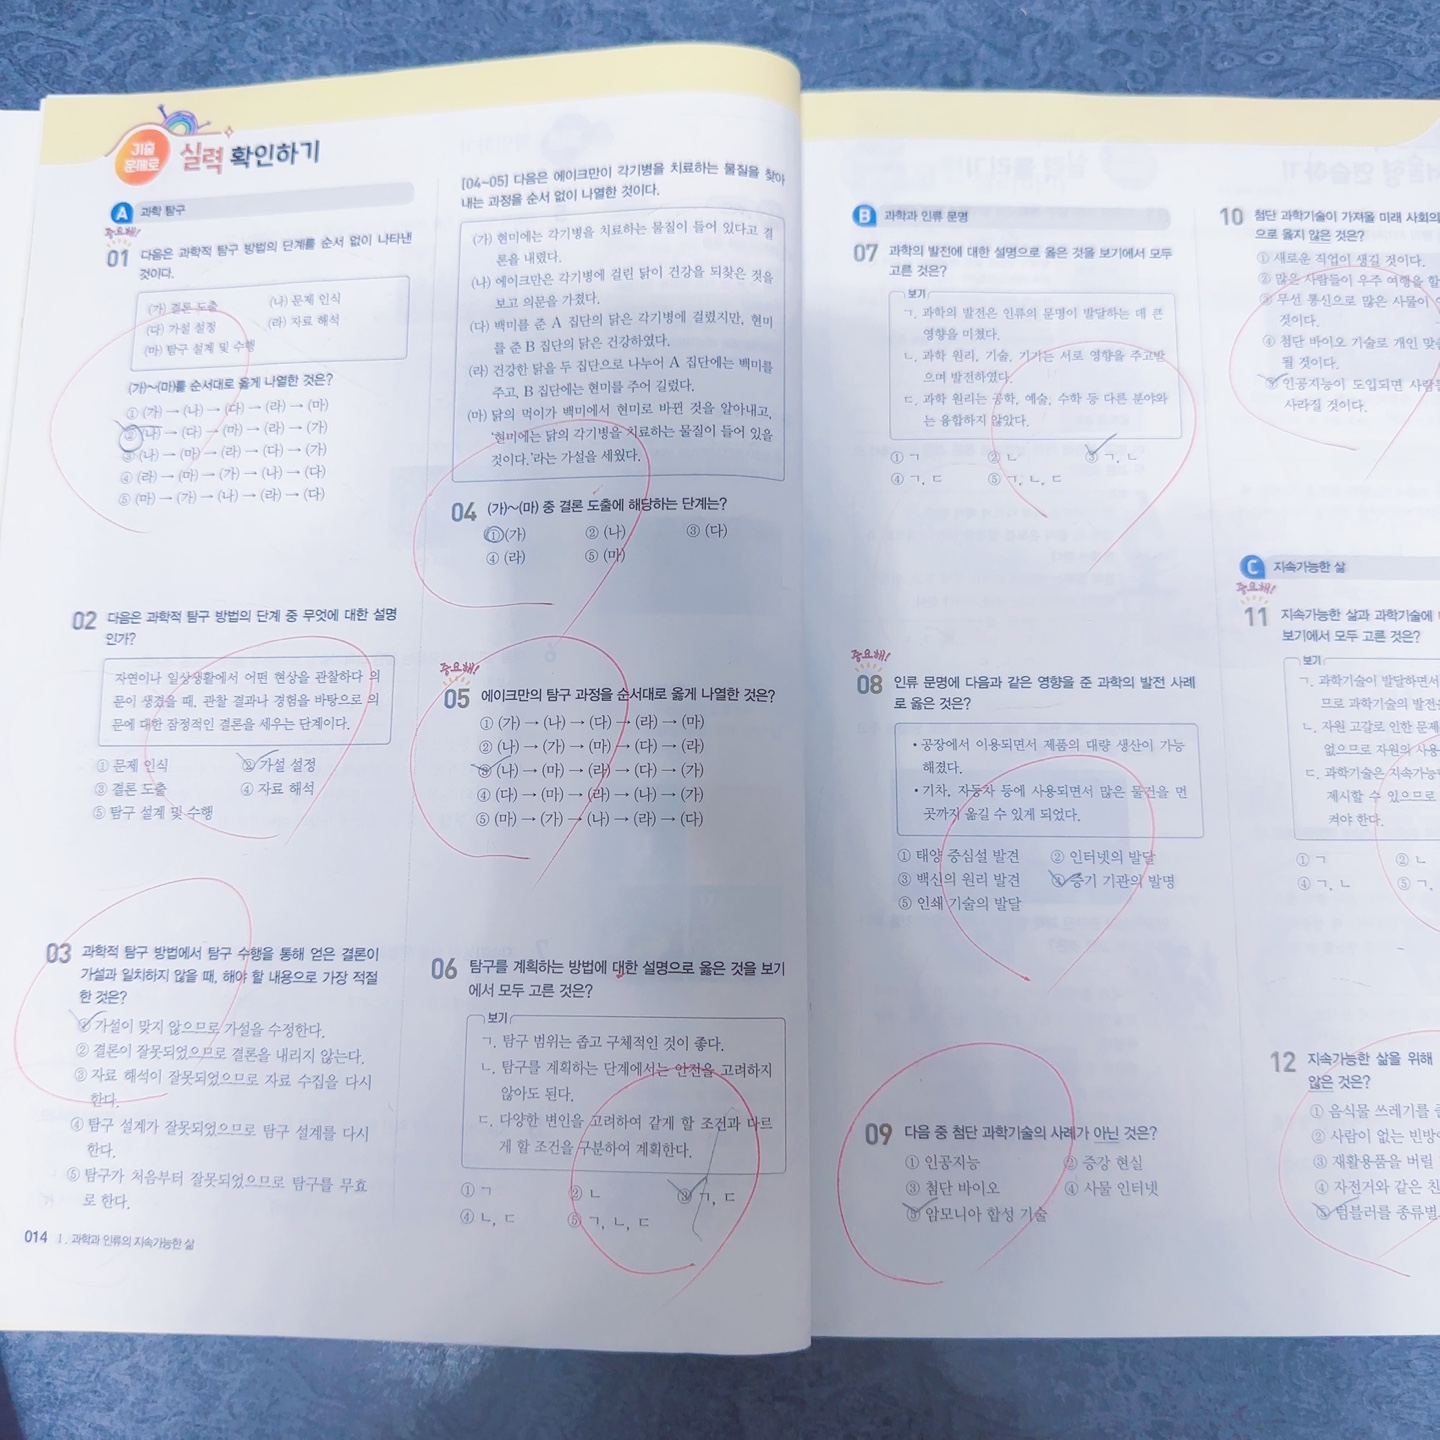 기출
문제로
실력 확인하기
A 과학 탐구
중요해!
01 다음은 과학적 탐구 방법의 단계를 순서 없이 나타낸
것이다.
(가) 결론 도출 (나) 문제 인식
(다) 가설 설정 (라) 자료 해석
(마) 탐구 설계 및 수행
(가)~(마)를 순서대로 옳게 나열한 것은?
① (가) → (나) → (다) → (라) → (마)
② (나) → (다) → (마) → (라) → (가)
③ (나) → (마) → (라) → (다) → (가)
④ (라) → (마) → (가) → (나) → (다)
⑤ (마) → (가) → (나) → (라) → (다)
02 다음은 과학적 탐구 방법의 단계 중 무엇에 대한 설명
인가?
자연이나 일상생활에서 어떤 현상을 관찰하다 의
문이 생겼을 때, 관찰 결과나 경험을 바탕으로 의
문에 대한 잠정적인 결론을 세우는 단계이다.
① 문제 인식 ② 가설 설정
③ 결론 도출 ④ 자료 해석
⑤ 탐구 설계 및 수행
03 과학적 탐구 방법에서 탐구 수행을 통해 얻은 결론이
가설과 일치하지 않을 때, 해야 할 내용으로 가장 적절
한 것은?
① 가설이 맞지 않으므로 가설을 수정한다.
② 결론이 잘못되었으므로 결론을 내리지 않는다.
③ 자료 해석이 잘못되었으므로 자료 수집을 다시
한다.
④ 탐구 설계가 잘못되었으므로 탐구 설계를 다시
한다.
⑤ 탐구가 처음부터 잘못되었으므로 탐구를 무효
로 한다.
014 I. 과학과 인류의 지속가능한 삶
[04~05] 다음은 에이크만이 각기병을 치료하는 물질을 찾아
내는 과정을 순서 없이 나열한 것이다.
(가) 현미에는 각기병을 치료하는 물질이 들어 있다고 결
론을 내렸다.
(나) 에이크만은 각기병에 걸린 닭이 건강을 되찾은 것을
보고 의문을 가졌다.
(다) 백미를 준 A 집단의 닭은 각기병에 걸렸지만, 현미
를 준 B 집단의 닭은 건강하였다.
(라) 건강한 닭을 두 집단으로 나누어 A 집단에는 백미를
주고, B 집단에는 현미를 주어 길렀다.
(마) 닭의 먹이가 백미에서 현미로 바뀐 것을 알아내고,
'현미에는 닭의 각기병을 치료하는 물질이 들어 있을
것이다.'라는 가설을 세웠다.
04 (가)~(마) 중 결론 도출에 해당하는 단계는?
① (가) ② (나) ③ (다)
④ (라) ⑤ (마)
중요해!
05 에이크만의 탐구 과정을 순서대로 옳게 나열한 것은?
① (가) → (나) → (다) → (라) → (마)
② (나) → (가) → (마) → (다) → (라)
③ (나) → (마) → (라) → (다) → (가)
④ (다) → (마) → (라) → (나) → (가)
⑤ (마) → (가) → (나) → (라) → (다)
06 탐구를 계획하는 방법에 대한 설명으로 옳은 것을 보기
에서 모두 고른 것은?
보기
ㄱ. 탐구 범위는 좁고 구체적인 것이 좋다.
ㄴ. 탐구를 계획하는 단계에서는 안전을 고려하지
않아도 된다.
ㄷ. 다양한 변인을 고려하여 같게 할 조건과 다르
게 할 조건을 구분하여 계획한다.
① ㄱ ② ㄴ ③ ㄱ, ㄷ
④ ㄴ, ㄷ ⑤ ㄱ, ㄴ, ㄷ
B 과학과 인류 문명
07 과학의 발전에 대한 설명으로 옳은 것을 보기에서 모두
고른 것은?
보기
ㄱ. 과학의 발전은 인류의 문명이 발달하는 데 큰
영향을 미쳤다.
ㄴ. 과학 원리, 기술, 기기는 서로 영향을 주고받
으며 발전하였다.
ㄷ. 과학 원리는 공학, 예술, 수학 등 다른 분야와
는 융합하지 않았다.
① ㄱ ② ㄴ ③ ㄱ, ㄴ
④ ㄱ, ㄷ ⑤ ㄱ, ㄴ, ㄷ
중요해!
08 인류 문명에 다음과 같은 영향을 준 과학의 발전 사례
로 옳은 것은?
• 공장에서 이용되면서 제품의 대량 생산이 가능
해졌다.
• 기차, 자동차 등에 사용되면서 많은 물건을 먼
곳까지 옮길 수 있게 되었다.
① 태양 중심설 발견 ② 인터넷의 발달
③ 백신의 원리 발견 ④ 증기 기관의 발명
⑤ 인쇄 기술의 발달
09 다음 중 첨단 과학기술의 사례가 아닌 것은?
① 인공지능 ② 증강 현실
③ 첨단 바이오 ④ 사물 인터넷
⑤ 암모니아 합성 기술
10 첨단 과학기술이 가져올 미래 사회의
으로 옳지 않은 것은?
① 새로운 직업이 생길 것이다.
② 많은 사람들이 우주 여행을 할
③ 무선 통신으로 많은 사물이
것이다.
④ 첨단 바이오 기술로 개인 맞
될 것이다.
⑤ 인공지능이 도입되면 사람들
사라질 것이다.
C 지속가능한 삶
중요해!
11 지속가능한 삶과 과학기술에
보기에서 모두 고른 것은?
보기
ㄱ. 과학기술이 발달하면서
므로 과학기술의 발전은
ㄴ. 자원 고갈로 인한 문제
없으므로 자원의 사용
ㄷ. 과학기술은 지속가능한
제시할 수 있으므로
켜야 한다.
① ㄱ ② ㄴ
④ ㄱ, ㄴ ⑤ ㄱ,
12 지속가능한 삶을 위해
않은 것은?
① 음식물 쓰레기를
② 사람이 없는 빈방
③ 재활용품을 버릴
④ 자전거와 같은 친
⑤ 텀블러를 종류별